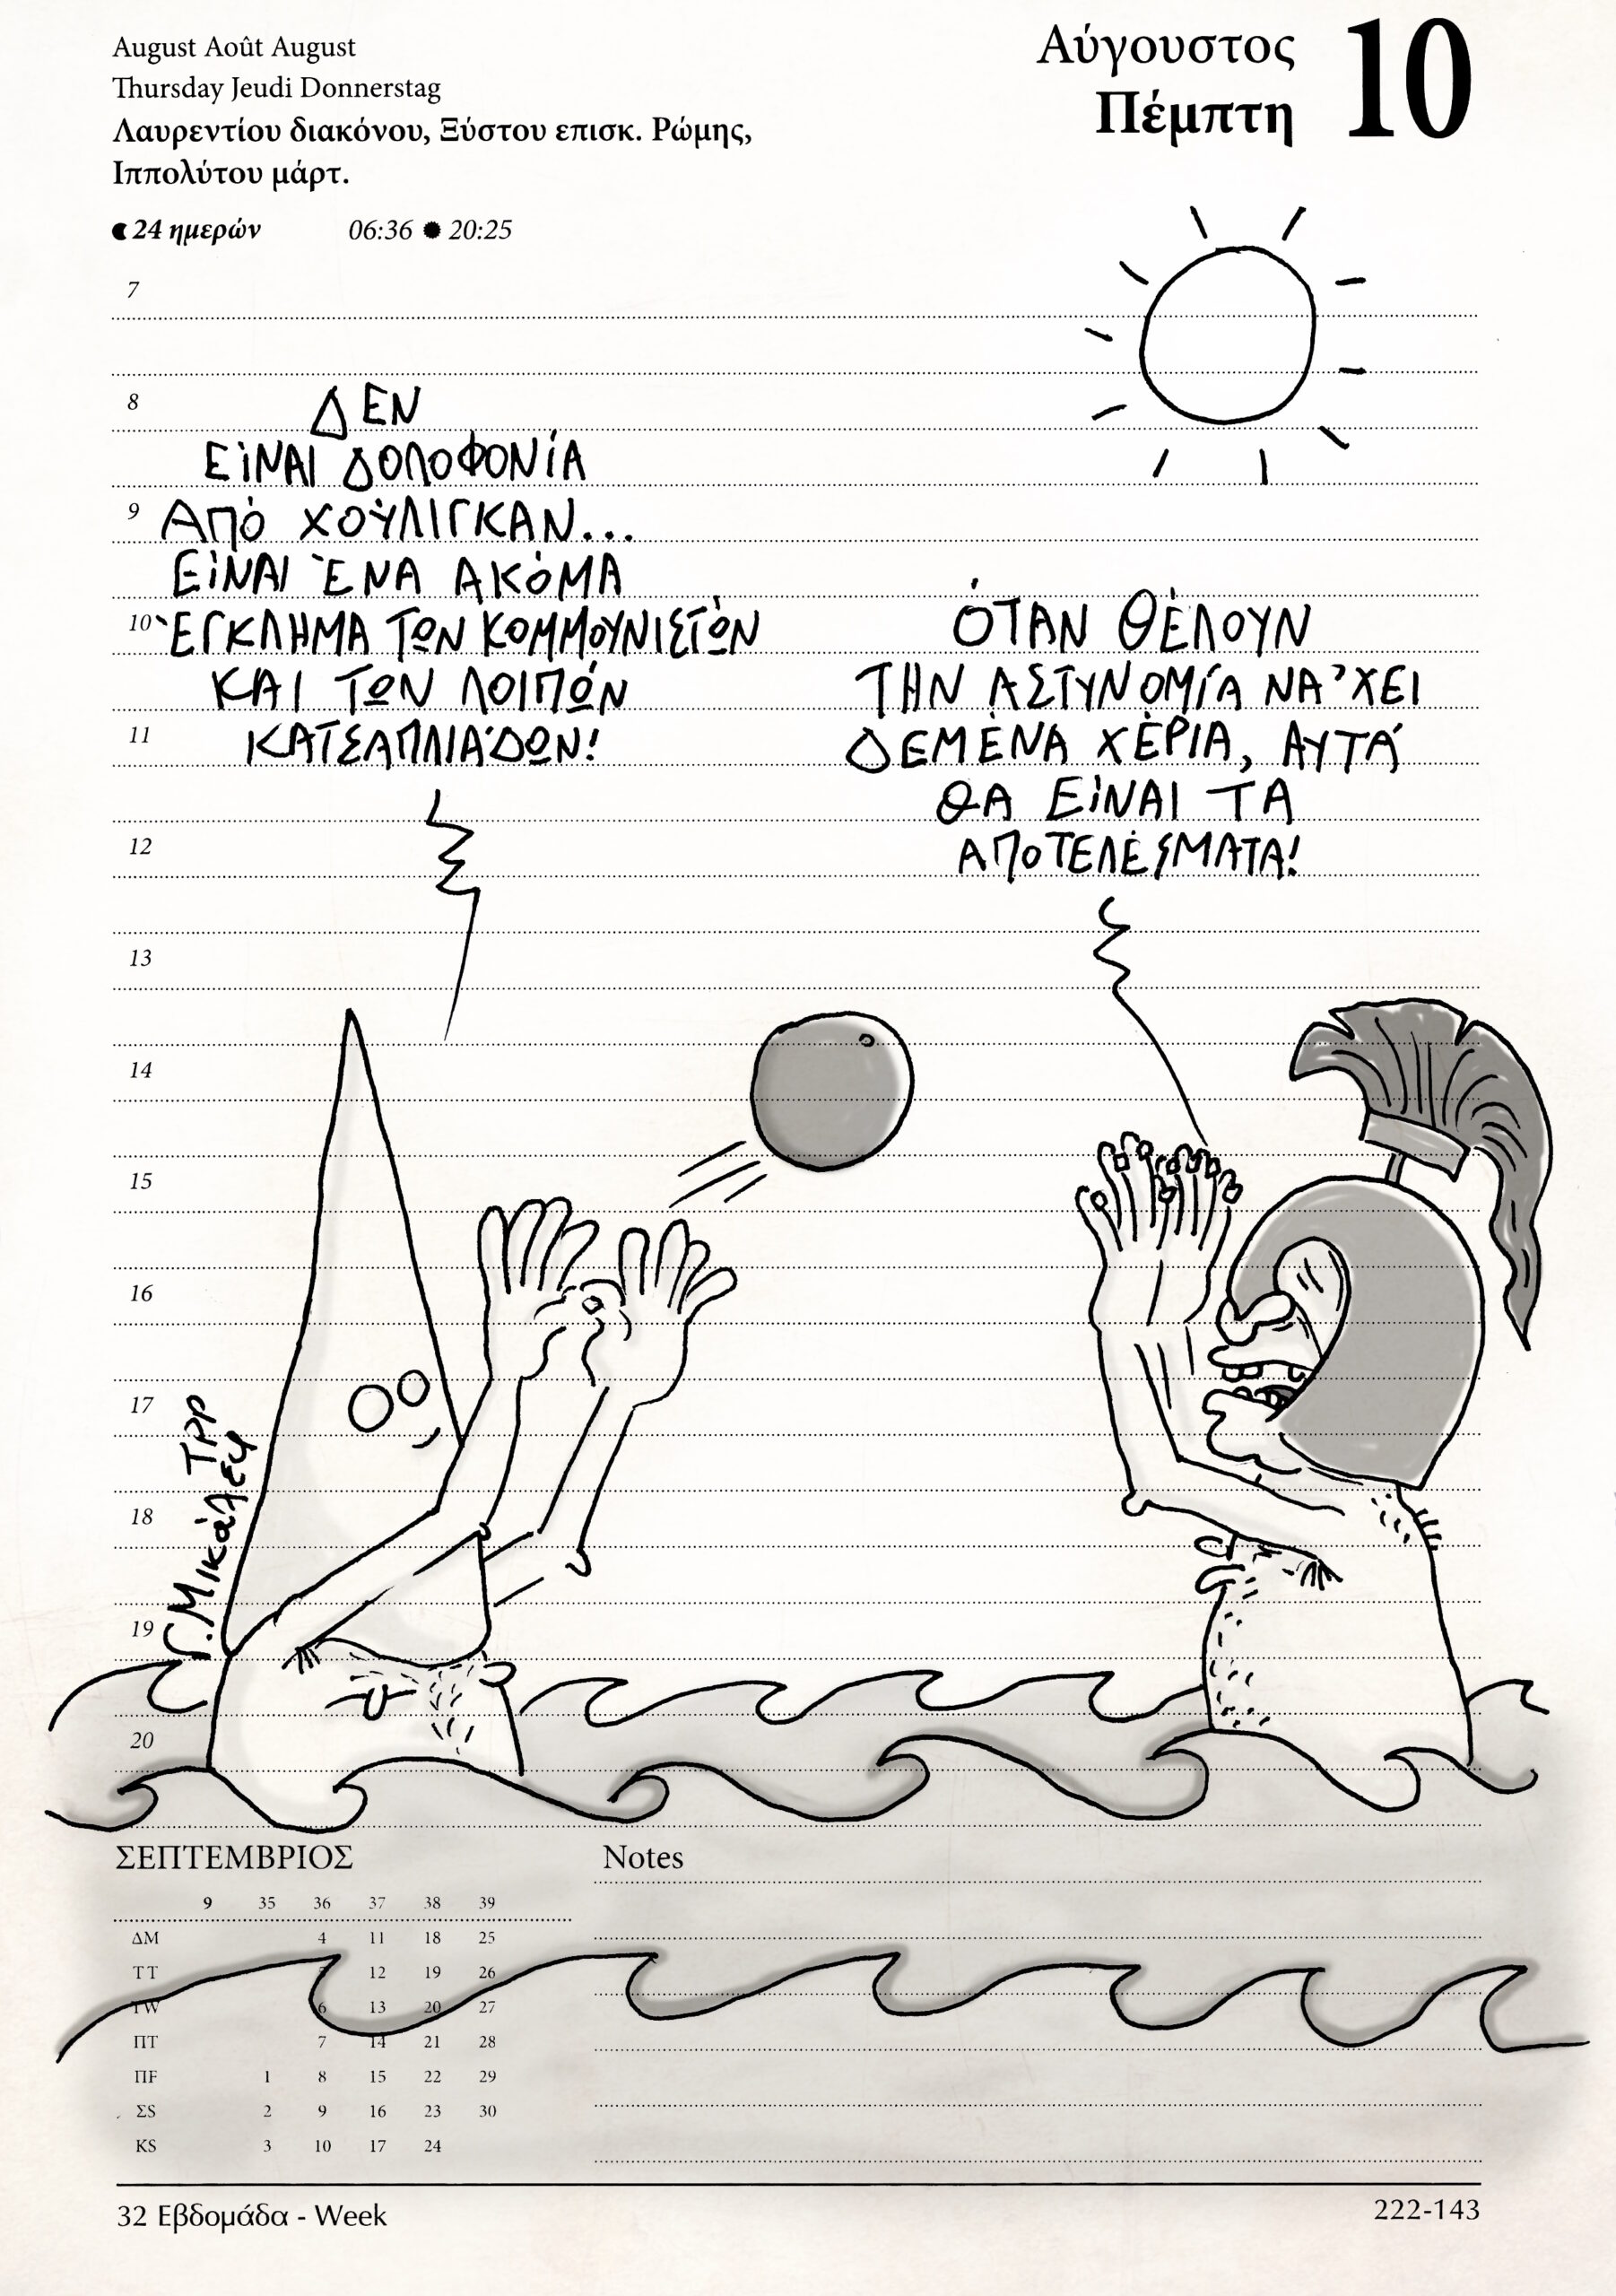 August Août August
Thursday Jeudi Donnerstag
Λαυρεντίου διακόνου, Ξύστου επισκ. Ρώμης,
Ιππολύτου μάρτ.
24 ημερών 06:36 20:25
Αύγουστος 10
Πέμπτη
7
8
9
10
11
12
13
14
15
16
17
18
19
20
ΔΕΝ
ΕίΝΑΙ ΔΟΛΟΦΟΝίΑ
ΑΠό ΧΟύΛΙΓΚΑΝ...
ΕίΝΑΙ ΈΝΑ ΑΚόΜΑ
ΈΓΚΛΗΜΑ ΤΩΝ ΚΟΜΜΟΥΝΙΣΤώΝ
ΚΑΙ ΤΩΝ ΛΟΙΠώΝ
ΚΑΤΣΑΠΛΙΆΔΩΝ!
ΌΤΑΝ ΘέΛΟΥΝ
ΤΗΝ ΑΣΤΥΝΟΜίΑ ΝΑ'ΧΕΙ
ΔΕΜέΝΑ ΧέΡΙΑ, ΑΥΤΆ
ΘΑ ΕίΝΑΙ ΤΑ
ΑΠΟΤΕΛέΣΜΑΤΑ!
Γ. Μικάλεφ
ΣΕΠΤΕΜΒΡΙΟΣ
9 35 36 37 38 39
ΔΜ 4 11 18 25
ΤΤ 5 12 19 26
ΤW 6 13 20 27
ΠΤ 7 14 21 28
ΠF 1 8 15 22 29
ΣS 2 9 16 23 30
ΚS 3 10 17 24
Notes
32 Εβδομάδα - Week
222-143